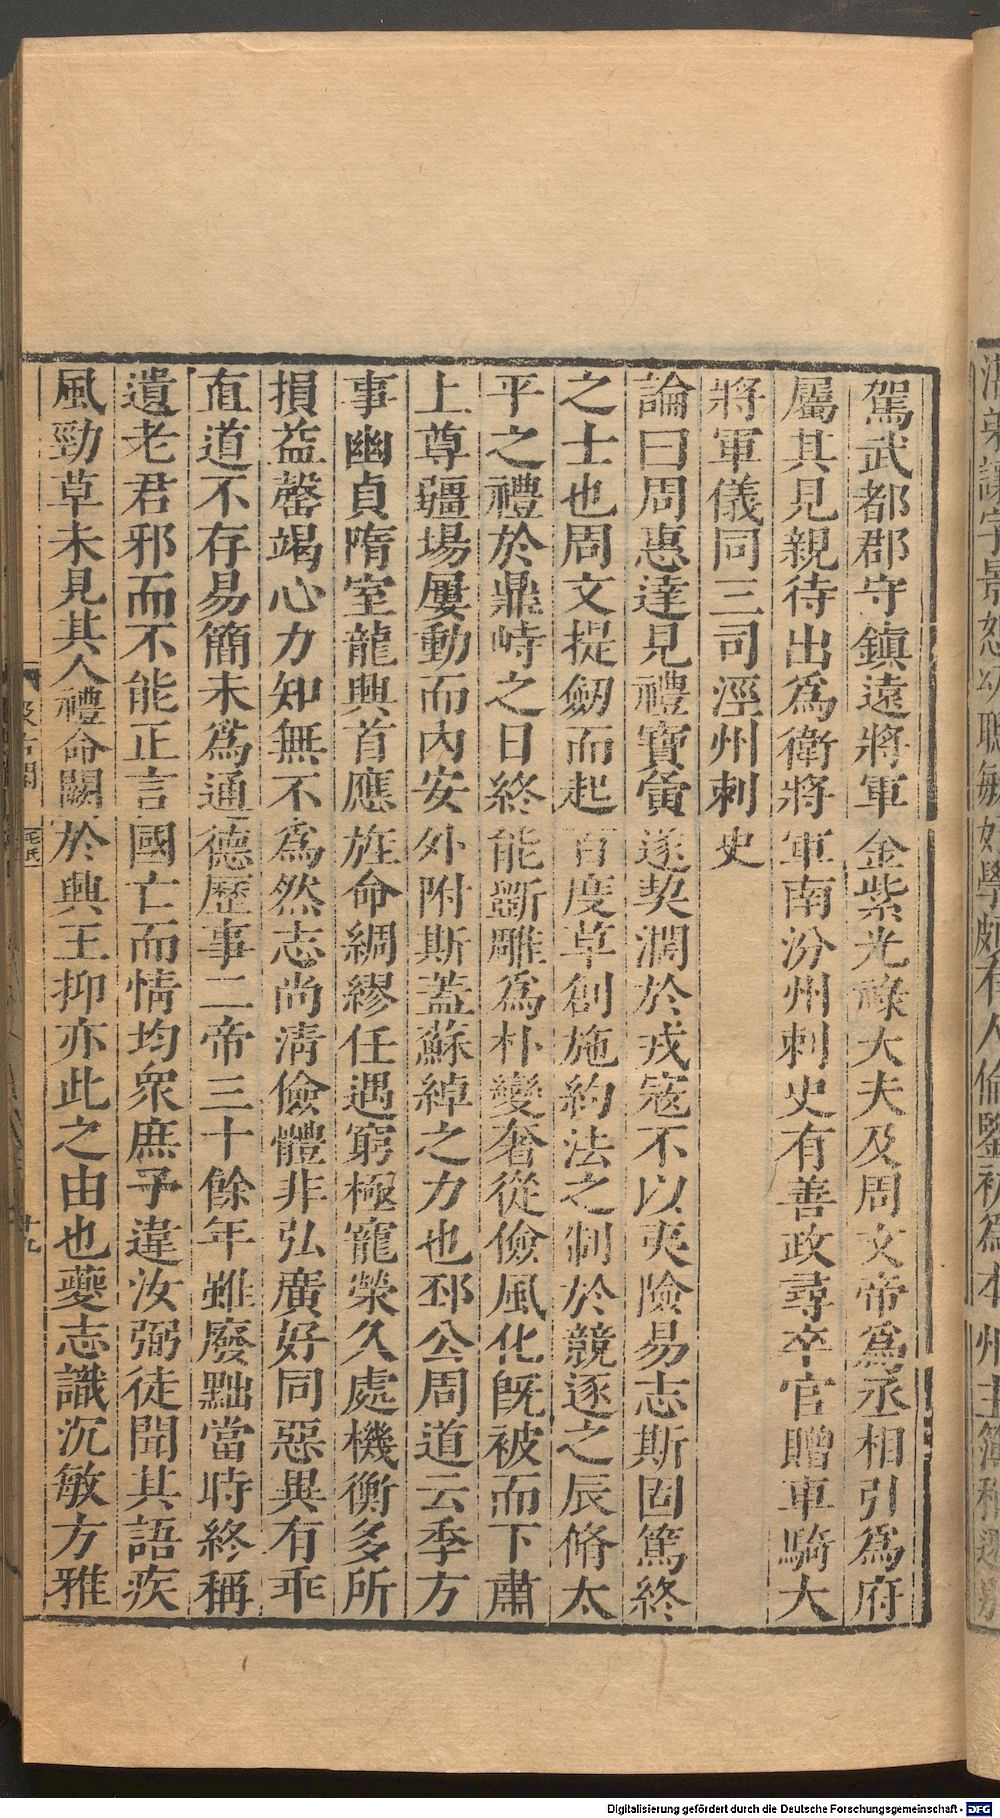 駕武都郡守鎮遠將軍金紫光祿大夫及周文帝爲丞相引爲府
屬其見親待出爲衛將軍南汾州刺史有善政尋卒官贈車騎大
將軍儀同三司涇州刺史
論曰周惠達見禮寶夤遂契濶於戎寇不以夷險易志斯固篤終
之士也周文提劒而起百度草創施約法之制於競逐之辰脩太
平之禮於鼎峙之日終能斵雕爲朴變奢從儉風化旣被而下肅
上尊疆場屢動而內安外附斯蓋蘇綽之力也邳公周道云季方
事幽貞隋室龍興首應旌命綢繆任遇窮極寵榮久處機衡多所
損益罄竭心力知無不爲然志尚淸儉體非弘廣好同惡異有乖
直道不存易簡未爲通德歷事二帝三十餘年雖廢黜當時終稱
遺老君邪而不能正言國亡而情均衆庶予違汝弼徒聞其語疾
風勁草未見其人禮命闕於興王抑亦此之由也夔志識沉敏方雅
十九
Digitalisierung gefördert durch die Deutsche Forschungsgemeinschaft - DFG